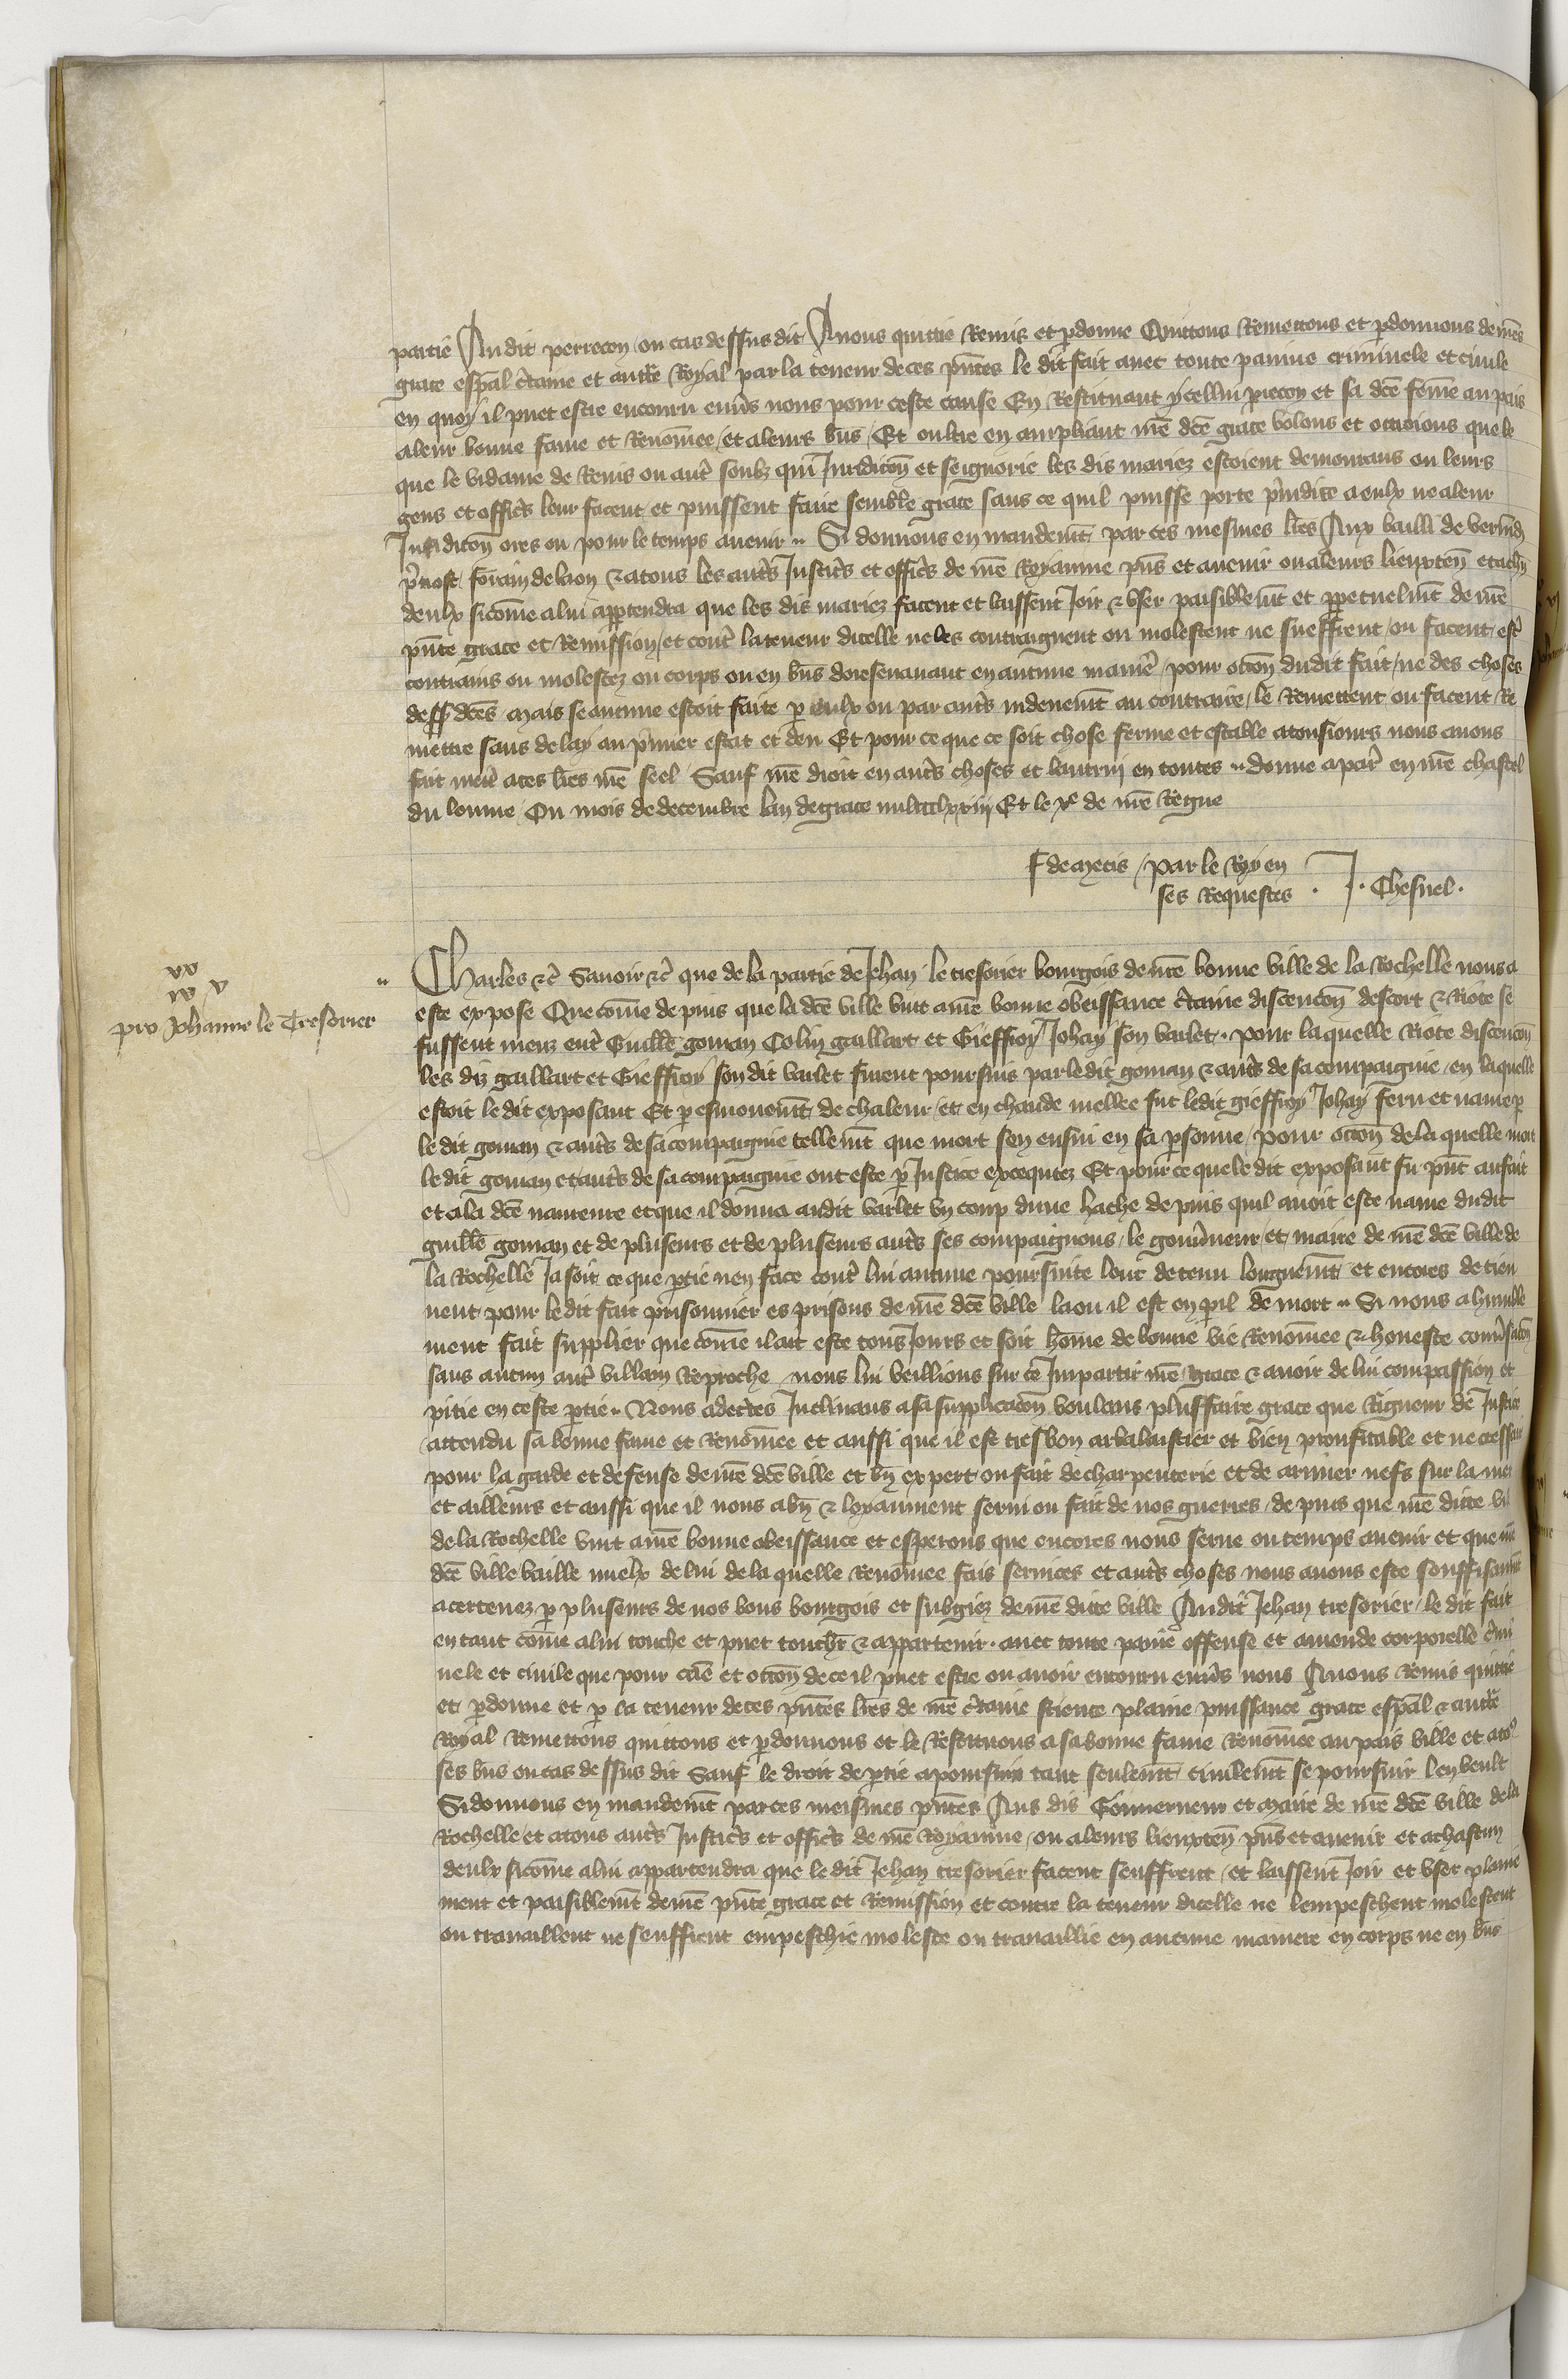 partie Audit perrecon ou cas dessus dit Avons quittie Remis et pdonne Quittons Remettons et pdonnons de nre
grace espal ctaine et auctte Royal par la teneur de ces pntes le dit fait avec toute painne criminele et civile
en quoy il puet estre encouru envs nous pour ceste cause En Restituant ycellui precon et sa dce feme au pais
a leur bonne fame et Renomee et a leurs bns Et oultre en ampliant nre dce grace volons et ottroions que le
que le vidame de Reins ou autr soubz qui Juridicon et seignorie les dis mariez estoient demourans ou leurs
gens et offics leur facent et puissent faire semble grace sans ce quil puisse porte pjudice a eulx ne a leur
Juridicon ores ou pour le temps avenir Si donnons en mandemt par ces mesmes lres Aux bailli de vermd
pvost forain de laon & a tous les autrs Justics et offics de nre Royaume pns et avenir ou a leurs lieuxten et a chn
deulx sicome a lui apptendra que les dis mariez facent et laissent Joir & user paisiblemt et ppetuelmt de nre
pnte grace et Remission et contr la teneur dicelle ne les contraignent ou molestent ne sueffrent ou facent estr
contrains ou molestez ou corps ou en bns doresenavant en aucune manier pour occon dudit fait ne des choses
dess dces Mais se aucune estoit faite p eulx ou par autrs indeuemt au contraire le Remettent ou facent Re
mettre sans delay au pmier estat et deu Et pour ce que ce soit chose ferme et estable a tousiours nous avons
fait mettr a ces lres nre seel Sauf nre droit en autrs choses et lautrui en toutes donne a paris en nre chastel
du louvre Ou mois de decembre lan de grace mil ccclxxiij Et le xe de nre Regne
J de Mets par le Roy en
ses Requestes . J. Chesnel.
pro Johanne le Tresorier
Charles &c Savoir &c que de la partie de Jehan le tresorier bourgois de nre bonne ville de la Rochelle nous a
este expose Que come depuis que la dce ville vint a nre bonne obeissance ctaine discencon descort & Riote se
fussent meuz entr Guille goman Colin gaillart et Gieffroy Johay son varlet pour laquelle Riote discencon
les diz gaillart et Gieffroy son dit varlet furent poursuis par le dit goman & autrs de sa compaignie en laquelle
estoit le dit exposant Et p esmouvemt de chaleur et en chaude mellee fut ledit gieffroy Johay feru et navre p
le dit goman & autrs de sa compaignie tellemt que mort sen ensui en sa psonne pour occon de la quelle mort
le dit goman et autrs de sa compaignie ont este p Justice excequtez Et pour ce que le dit exposant fu pnt au fait
et a la dce navreure et que il donna audit varlet un coup dune hache depuis quil avoit este navre dudit
guille goman et de pluseurs et de pluseurs autrs ses compaignons le gouvneur et maire de nre dce ville de
la Rochelle Ja soit ce que ptie nen face contr lui aucune poursuite lont detenu longuemt et encores detien
nent pour le dit fait prisonnier es prisons de nre dce ville la ou il est en pil de mort Si nous a humble
ment fait supplier que come il ait este tous Jours et soit home de bonne vie Renomee & honeste convsacon
sans aucun autr villain Reproche nous lui veillions sur ce Impartir nre grace & avoir de lui compassion et
pitie en ceste ptie Nous adectes Inclinans a sa supplicacon voulans plus faire grace que Rigueur de Justice
attendu sa bonne fame et Renomee et aussi que il est tres bon arbalaistier et bien prouffitable et necessair
pour la garde et defense de nre dce ville et bn expert ou fait de charpenterie et de armer nefs sur la mer
et ailleurs et aussi que il nous a bn & loyaument servi ou fait de nos guerres depuis que nre ditte vil
de la Rochelle vint a nre bonne obeissance et esperons que encores nous serve ou temps avenir et que nre
dce ville vaille mielx de lui de la quelle Renomee fais services et autrs choses nous avons este souffisamt
acertenez p pluseurs de nos bons bourgois et subgiez de nre ditte ville Audit Jehan tresorier le dit fait
en tant come a lui touche et puet touchr & appartenir avec toute paine offense et amende corporelle cimi
nele et civile que pour cae et occon de ce il puet estre ou avoir encouru envs nous Avons Remis quitte
et pdonne et p la teneur de ces pntes lres de nre ctaine science plaine puissance grace espal & auctte
Royal Remettons quittons et pdonnons et le Restituons a sa bonne fame Renomee au pais ville et a tos
ses bns ou cas dessus dit Sauf le droit de ptie a poursuir tant seulemt civilemt se poursuir len veult
Si donnons en mandemt par ces meismes pntes Aus dis Gouverneur et Maire de nre dce ville de la
Rochelle et a tous autrs Justics et offics de nre Royaume ou a leurs lieuxten pns et avenir et a chascun
deulx sicome a lui appartendra que le dit Jehan tresorier facent seuffrent et laissent Joir et user plaine
ment et paisiblemt de nre pnte grace et Remission et contre la teneur dicelle ne lempeschent molestent
ou travaillent ne seuffrent empeschie moleste ou travaillie en aucune maniere en corps ne en bns